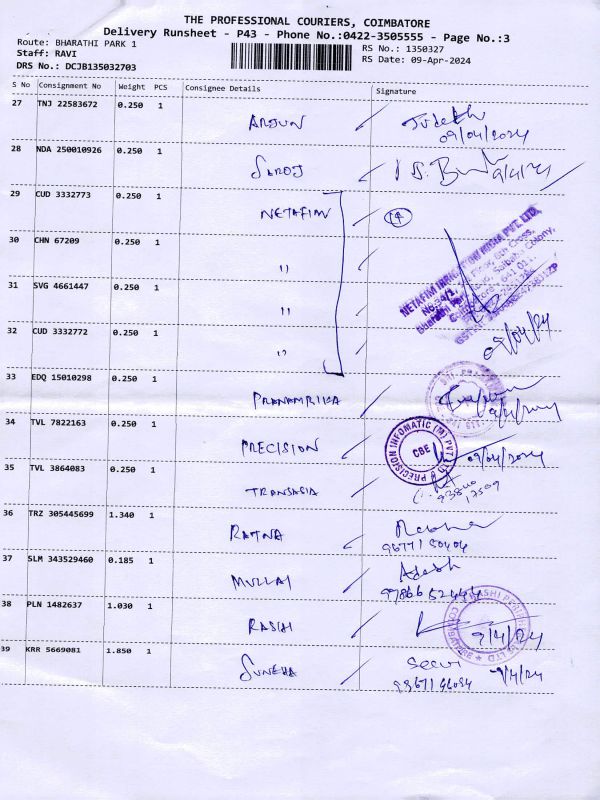 THE PROFESSIONAL COURIERS, COIMBATORE
Delivery Runsheet - P43 - Phone No.:0422-3505555 - Page No.:3
Route: BHARATHI PARK 1
RS No.: 1350327
Staff: RAVI
RS Date: 09-Apr-2024
DRS No.: DCJB135032703
S No Consignment No Weight PCS Consignee Details Signature
27 TNJ 22583672 0.250 1 ARJUN
09/04/2024
28 NDA 250010926 0.250 1 SAROJ 9/4/24
29 CUD 3332773 0.250 1 NETAFIM 14
NETAFIM IRRIGATION INDIA PVT. LTD,
30 CHN 67209 0.250 1 "
31 SVG 4661447 0.250 1 "
32 CUD 3332772 0.250 1 "
09/04/24
33 EDQ 15010298 0.250 1 PRANAMBIKA
34 TVL 7822163 0.250 1 PRECISION 09/04/24
PRECISION INFOMATIC (M) PVT LTD
CBE
35 TVL 3864083 0.250 1 TRANSASIA
36 TRZ 305445699 1.340 1 RATNA
37 SLM 343529460 0.185 1 MULLAI Adesh
38 PLN 1482637 1.030 1 RASHI 9/4/24
39 KRR 5669081 1.850 1 SUNEHA 9/4/24